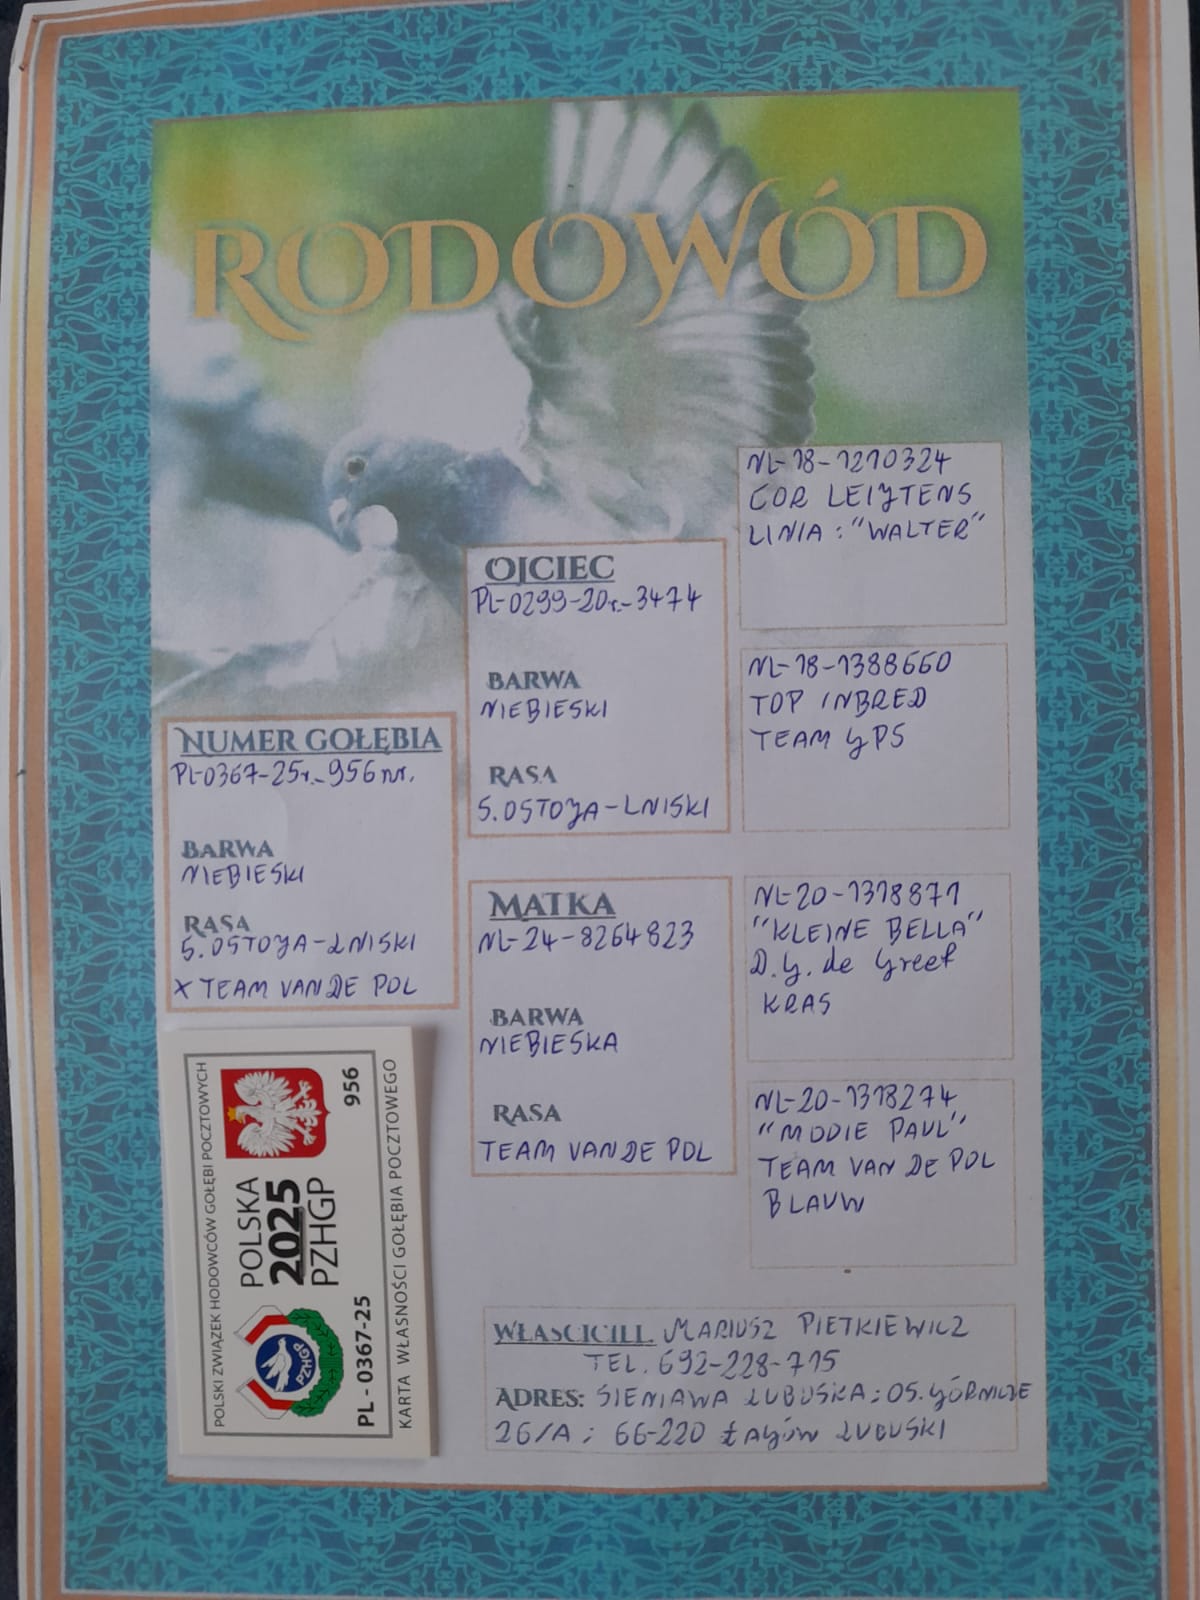 RODOWÓD
NUMER GOŁĘBIA
PL-0367-25r.-956 nr.
BARWA
NIEBIESKI
RASA
S. OSTOJA-ŁNISKI
X TEAM VAN DE POL
OJCIEC
PL-0299-20r.-3474
BARWA
NIEBIESKI
RASA
S. OSTOJA-LNISKI
MATKA
NL-24-8264823
BARWA
NIEBIESKA
RASA
TEAM VAN DE POL
NL-18-1210324
COR LEIJTENS
LINIA: "WALTER"
NL-18-1388660
TOP INBRED
TEAM GPS
NL-20-1318871
"KLEINE BELLA"
D.G. de Greef
KRAS
NL-20-1318274
"MOOIE PAUL"
TEAM VAN DE POL
BLAUW
WŁAŚCICIEL MARIUSZ PIETKIEWICZ
TEL. 692-228-715
ADRES: SIENIAWA LUBUSKA; OS. GÓRNICZE
26/A; 66-220 ŁAGÓW LUBUSKI
POLSKI ZWIĄZEK HODOWCÓW GOŁĘBI POCZTOWYCH
POLSKA
2025
PZHGP
956
PZHGP
PL - 0367-25
KARTA WŁASNOŚCI GOŁĘBIA POCZTOWEGO